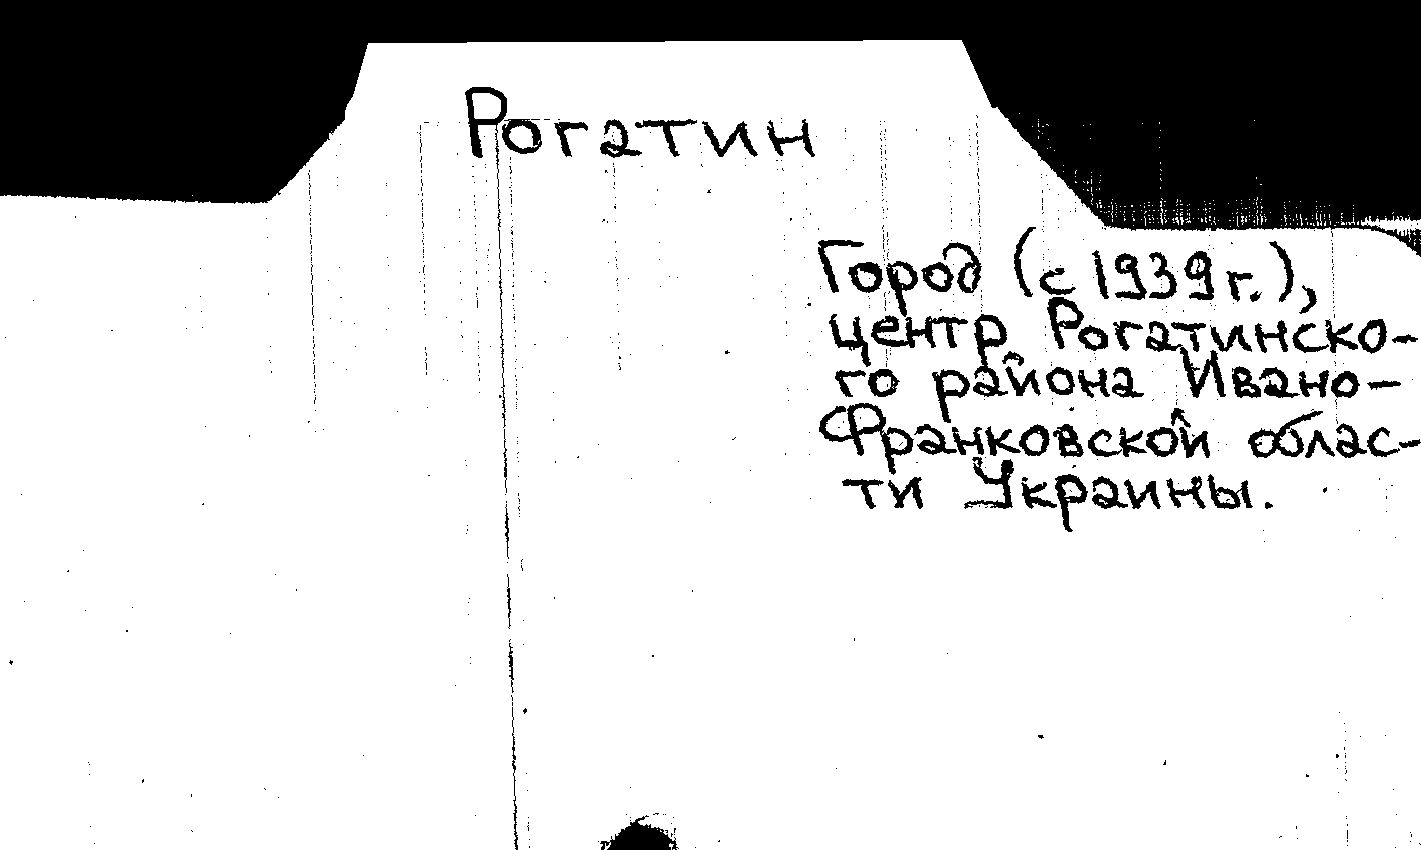 Рогатин
Город (с 1939 г.),
центр Рогатинско-
го района Ивано-
Франковской облас-
ти Украины.